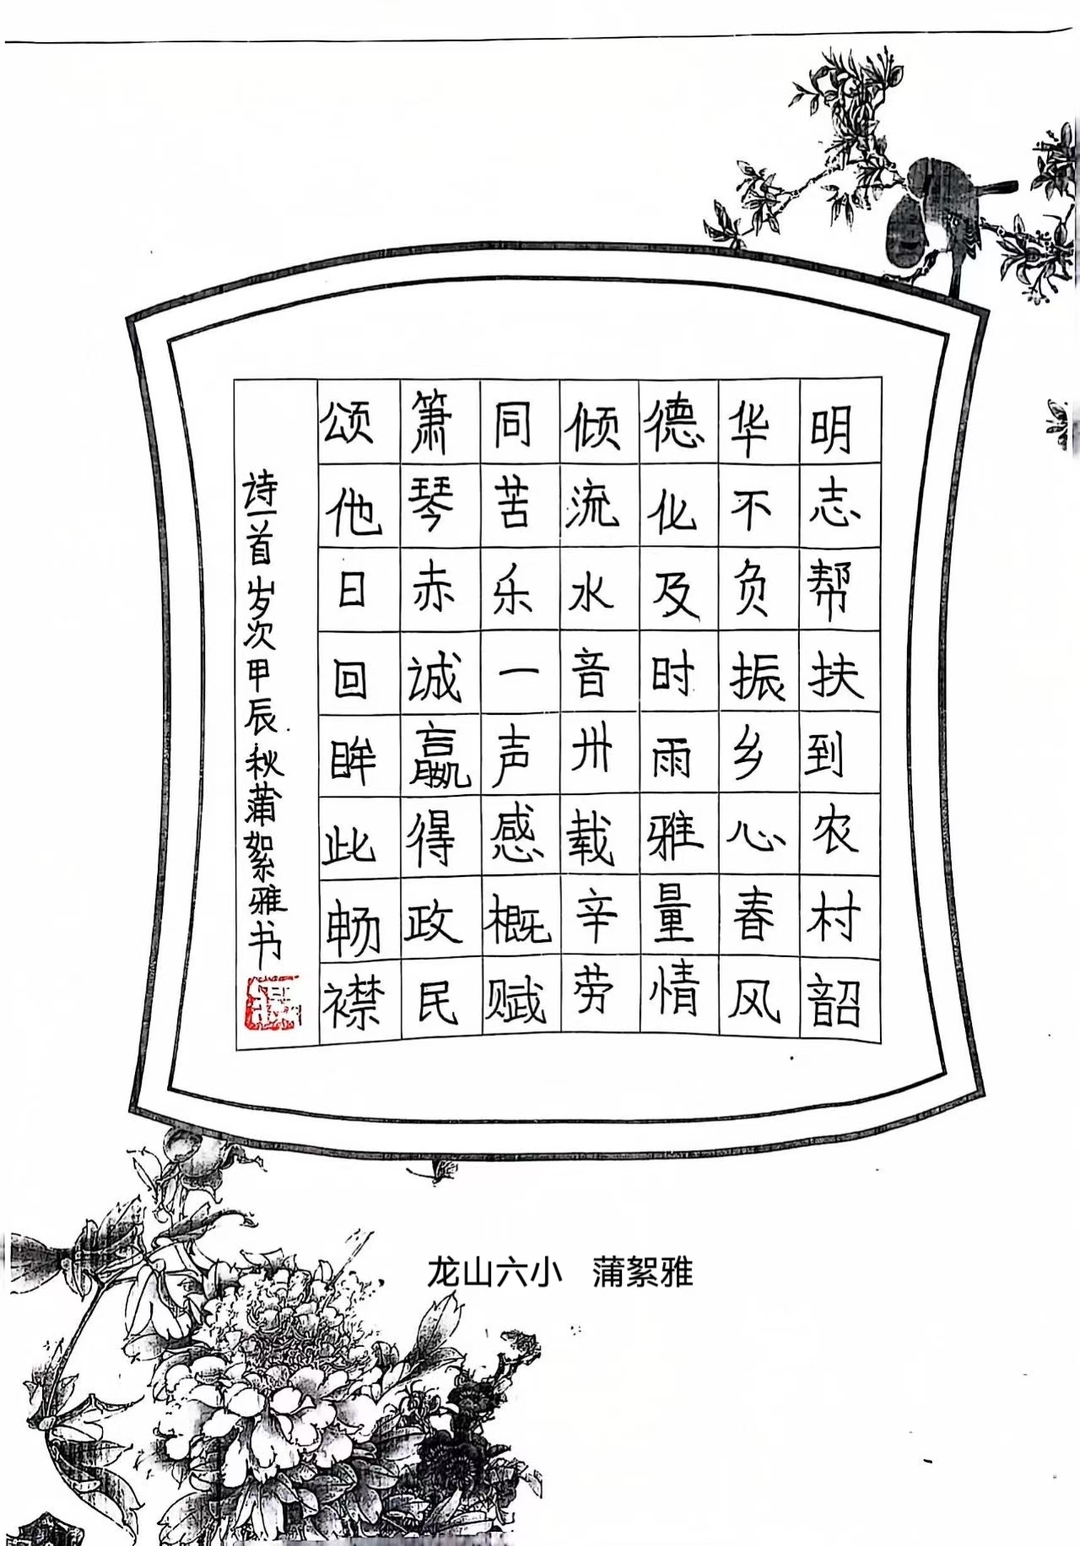 明志帮扶到农村韶
华不负振乡心春风
德化及时雨雅量情
倾流水音卅载辛劳
同苦乐一声感概赋
箫琴赤诚赢得政民
颂他日回眸此畅襟
诗一首岁次甲辰秋蒲絮雅书
龙山六小 蒲絮雅